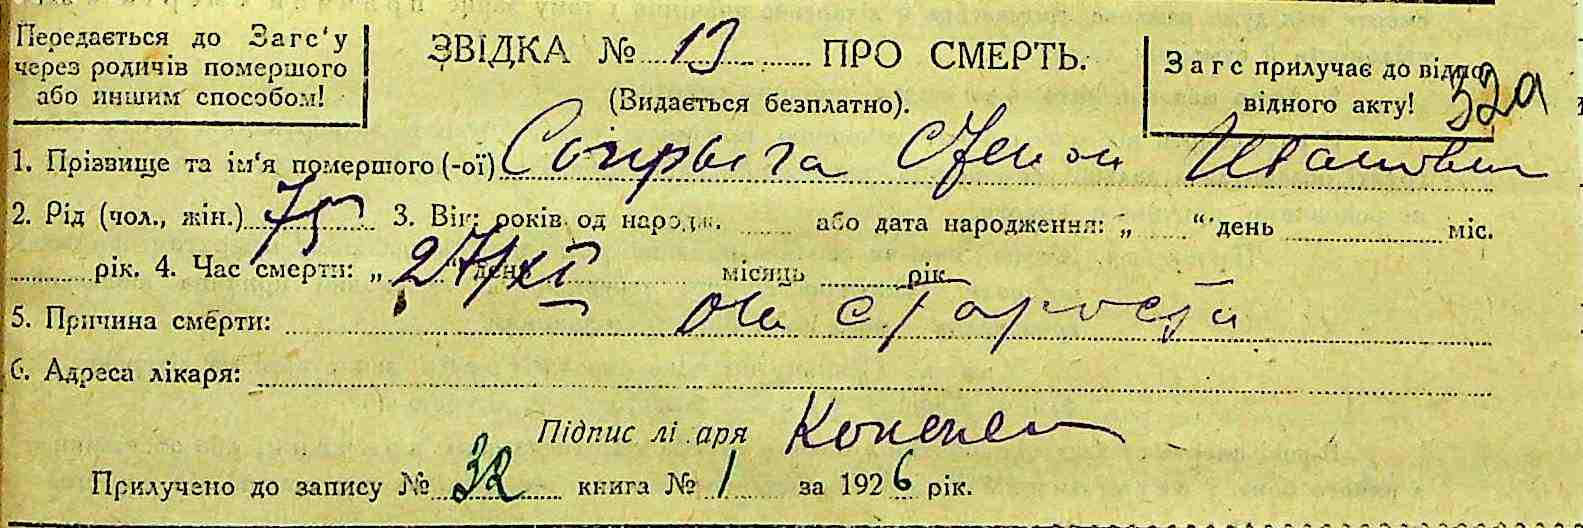 Передається до Загс'у
через родичів помершого
або иншим способом!
ЗВІДКА № 13 ПРО СМЕРТЬ.
(Видається безплатно).
Загс прилучає до відпо-
відного акту! 32а
1. Прізвище та ім'я помершого (-ої) Степан Иванович
2. Рід (чол., жін.) 75 3. Вік: років од народж. або дата народження: „ “ день міс.
рік. 4. Час смерти: „ 27/XI “ день місяць рік
5. Причина смерти: От старости
6. Адреса лікаря:
Підпис лікаря
Прилучено до запису № 32 книга № 1 за 1926 рік.